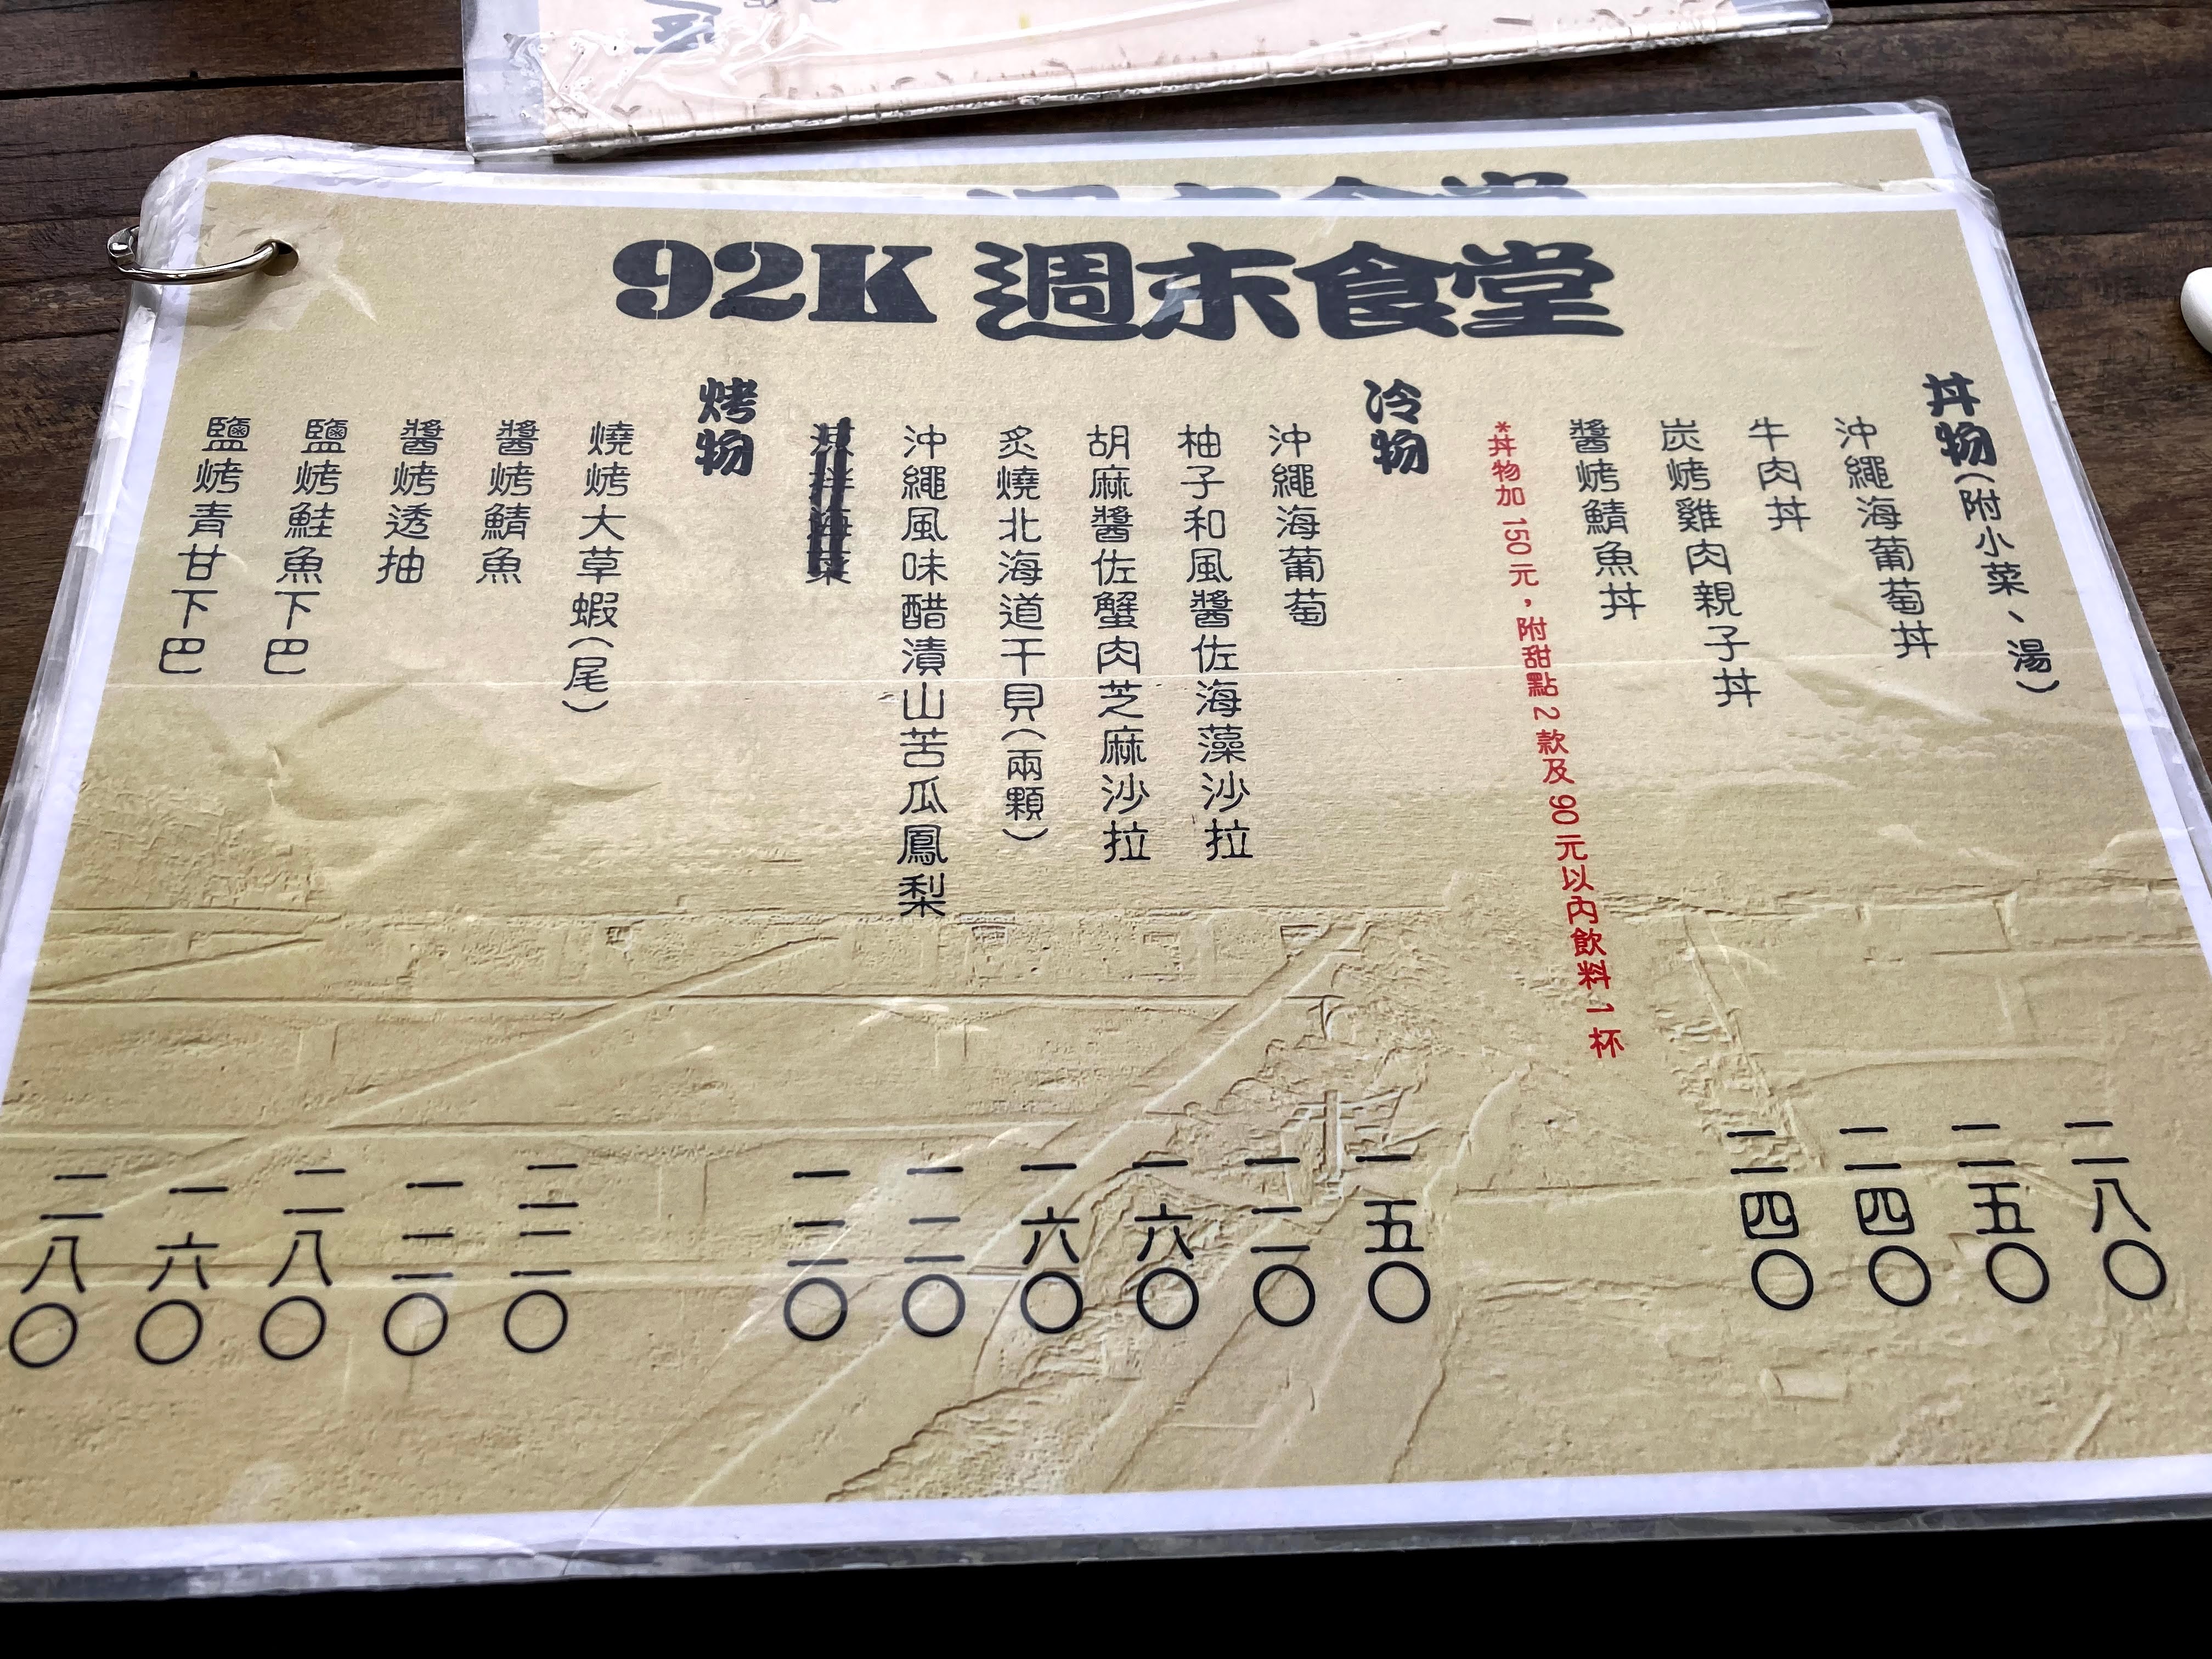 92K 週末食堂
丼物(附小菜、湯)
沖繩海葡萄丼 二八〇
牛肉丼 二五〇
炭烤雞肉親子丼 二四〇
醬烤鯖魚丼 二四〇
*丼物加 150 元，附甜點 2 款及 90 元以內飲料 1 杯
冷物
沖繩海葡萄 一五〇
柚子和風醬佐海藻沙拉 一二〇
胡麻醬佐蟹肉芝麻沙拉 一六〇
炙燒北海道干貝(兩顆) 一六〇
沖繩風味醋漬山苦瓜鳳梨 一二〇
一二〇
烤物
燒烤大草蝦(尾) 二二〇
醬烤鯖魚 一二〇
醬烤透抽 二八〇
鹽烤鮭魚下巴 一六〇
鹽烤青甘下巴 二八〇